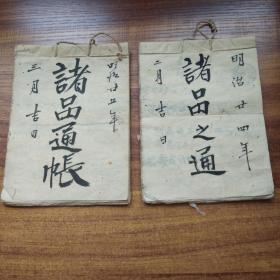 明治廿五年
諸品通帳
三月吉日
明治廿四年
諸品之通
二月吉日